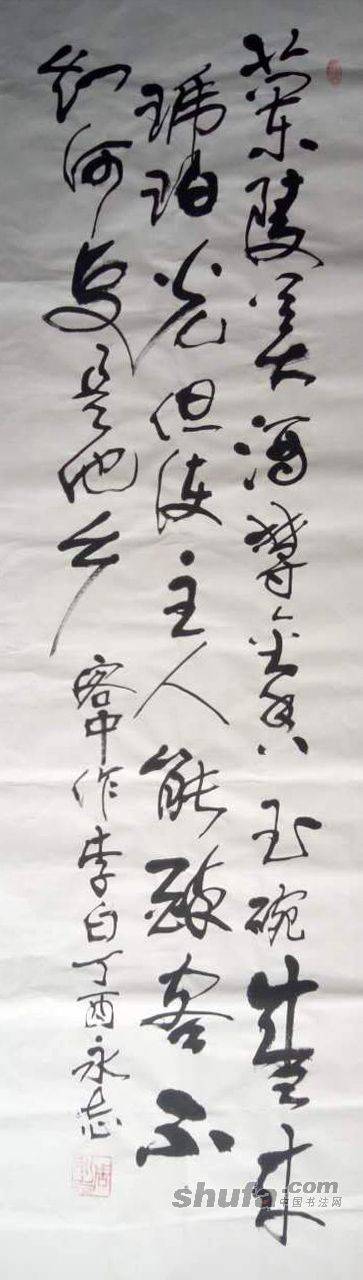 蘭陵美酒鬱金香玉碗盛来
琥珀光但使主人能醉客不
知何处是他乡
客中作李白丁酉永志
shufa.com
中国书法网